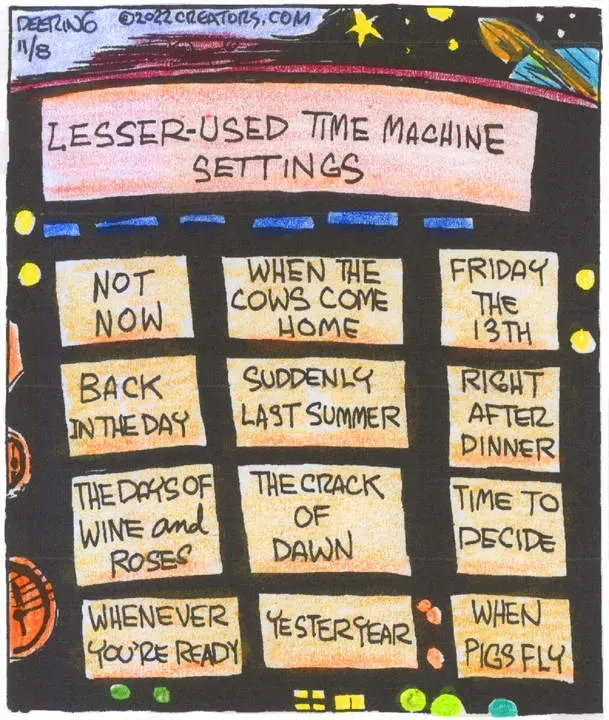 DEERING ©2022 CREATORS.COM
11/8
LESSER-USED TIME MACHINE
SETTINGS
NOT
NOW
WHEN THE
COWS COME
HOME
FRIDAY
THE
13TH
BACK
IN THE DAY
SUDDENLY
LAST SUMMER
RIGHT
AFTER
DINNER
THE DAYS OF
WINE and
ROSES
THE CRACK
OF
DAWN
TIME TO
DECIDE
WHENEVER
YOU'RE READY
YESTERYEAR
WHEN
PIGS FLY